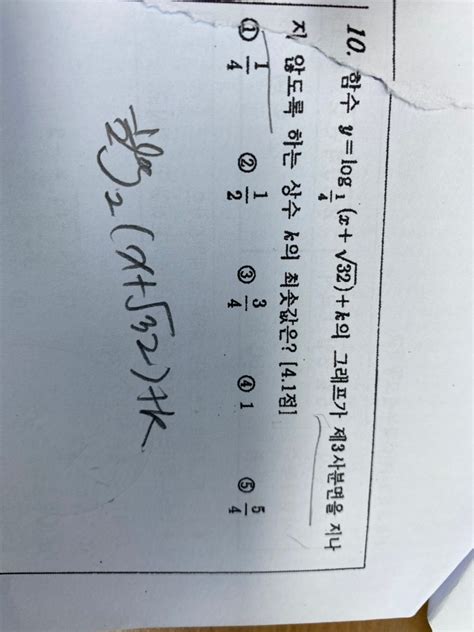 10. 함수 y=log_{1/4}(x+√32)+k의 그래프가 제3사분면을 지나
지 않도록 하는 상수 k의 최솟값은? [4.1점]
① 1/4 ② 1/2 ③ 3/4 ④ 1 ⑤ 5/4
log₂(x+√32)+k